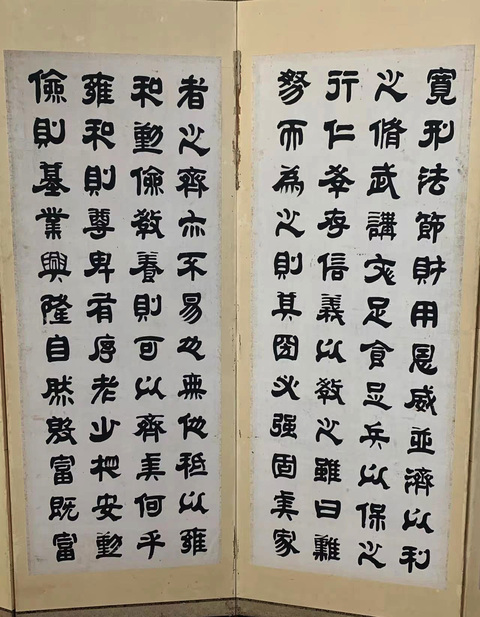 寬刑法節財用恩威並濟以利
之脩武講文足食足兵以保之
行仁孝存信義以教之雖曰難
努而為之則其國必强固矣家
者之齊亦不易也無他祗以雍
和勤儉教養則可以齊矣何乎
雍和則尊卑有序老少相安勤
儉則基業興隆自然殷富既富